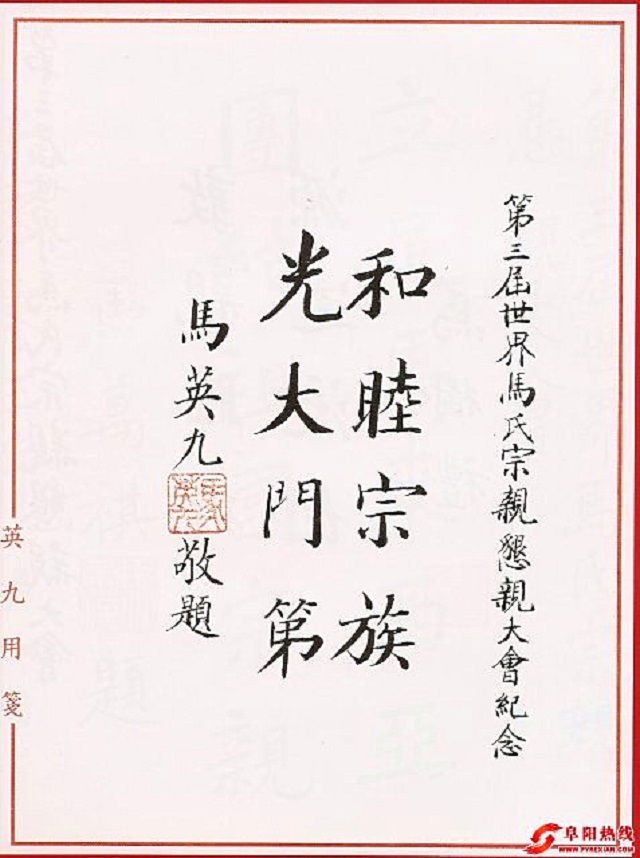 第三届世界馬氏宗親懇親大會紀念
和睦宗族
光大門第
馬英九
敬題
英九用箋
阜阳热线
WWW.FYREXIAN.COM